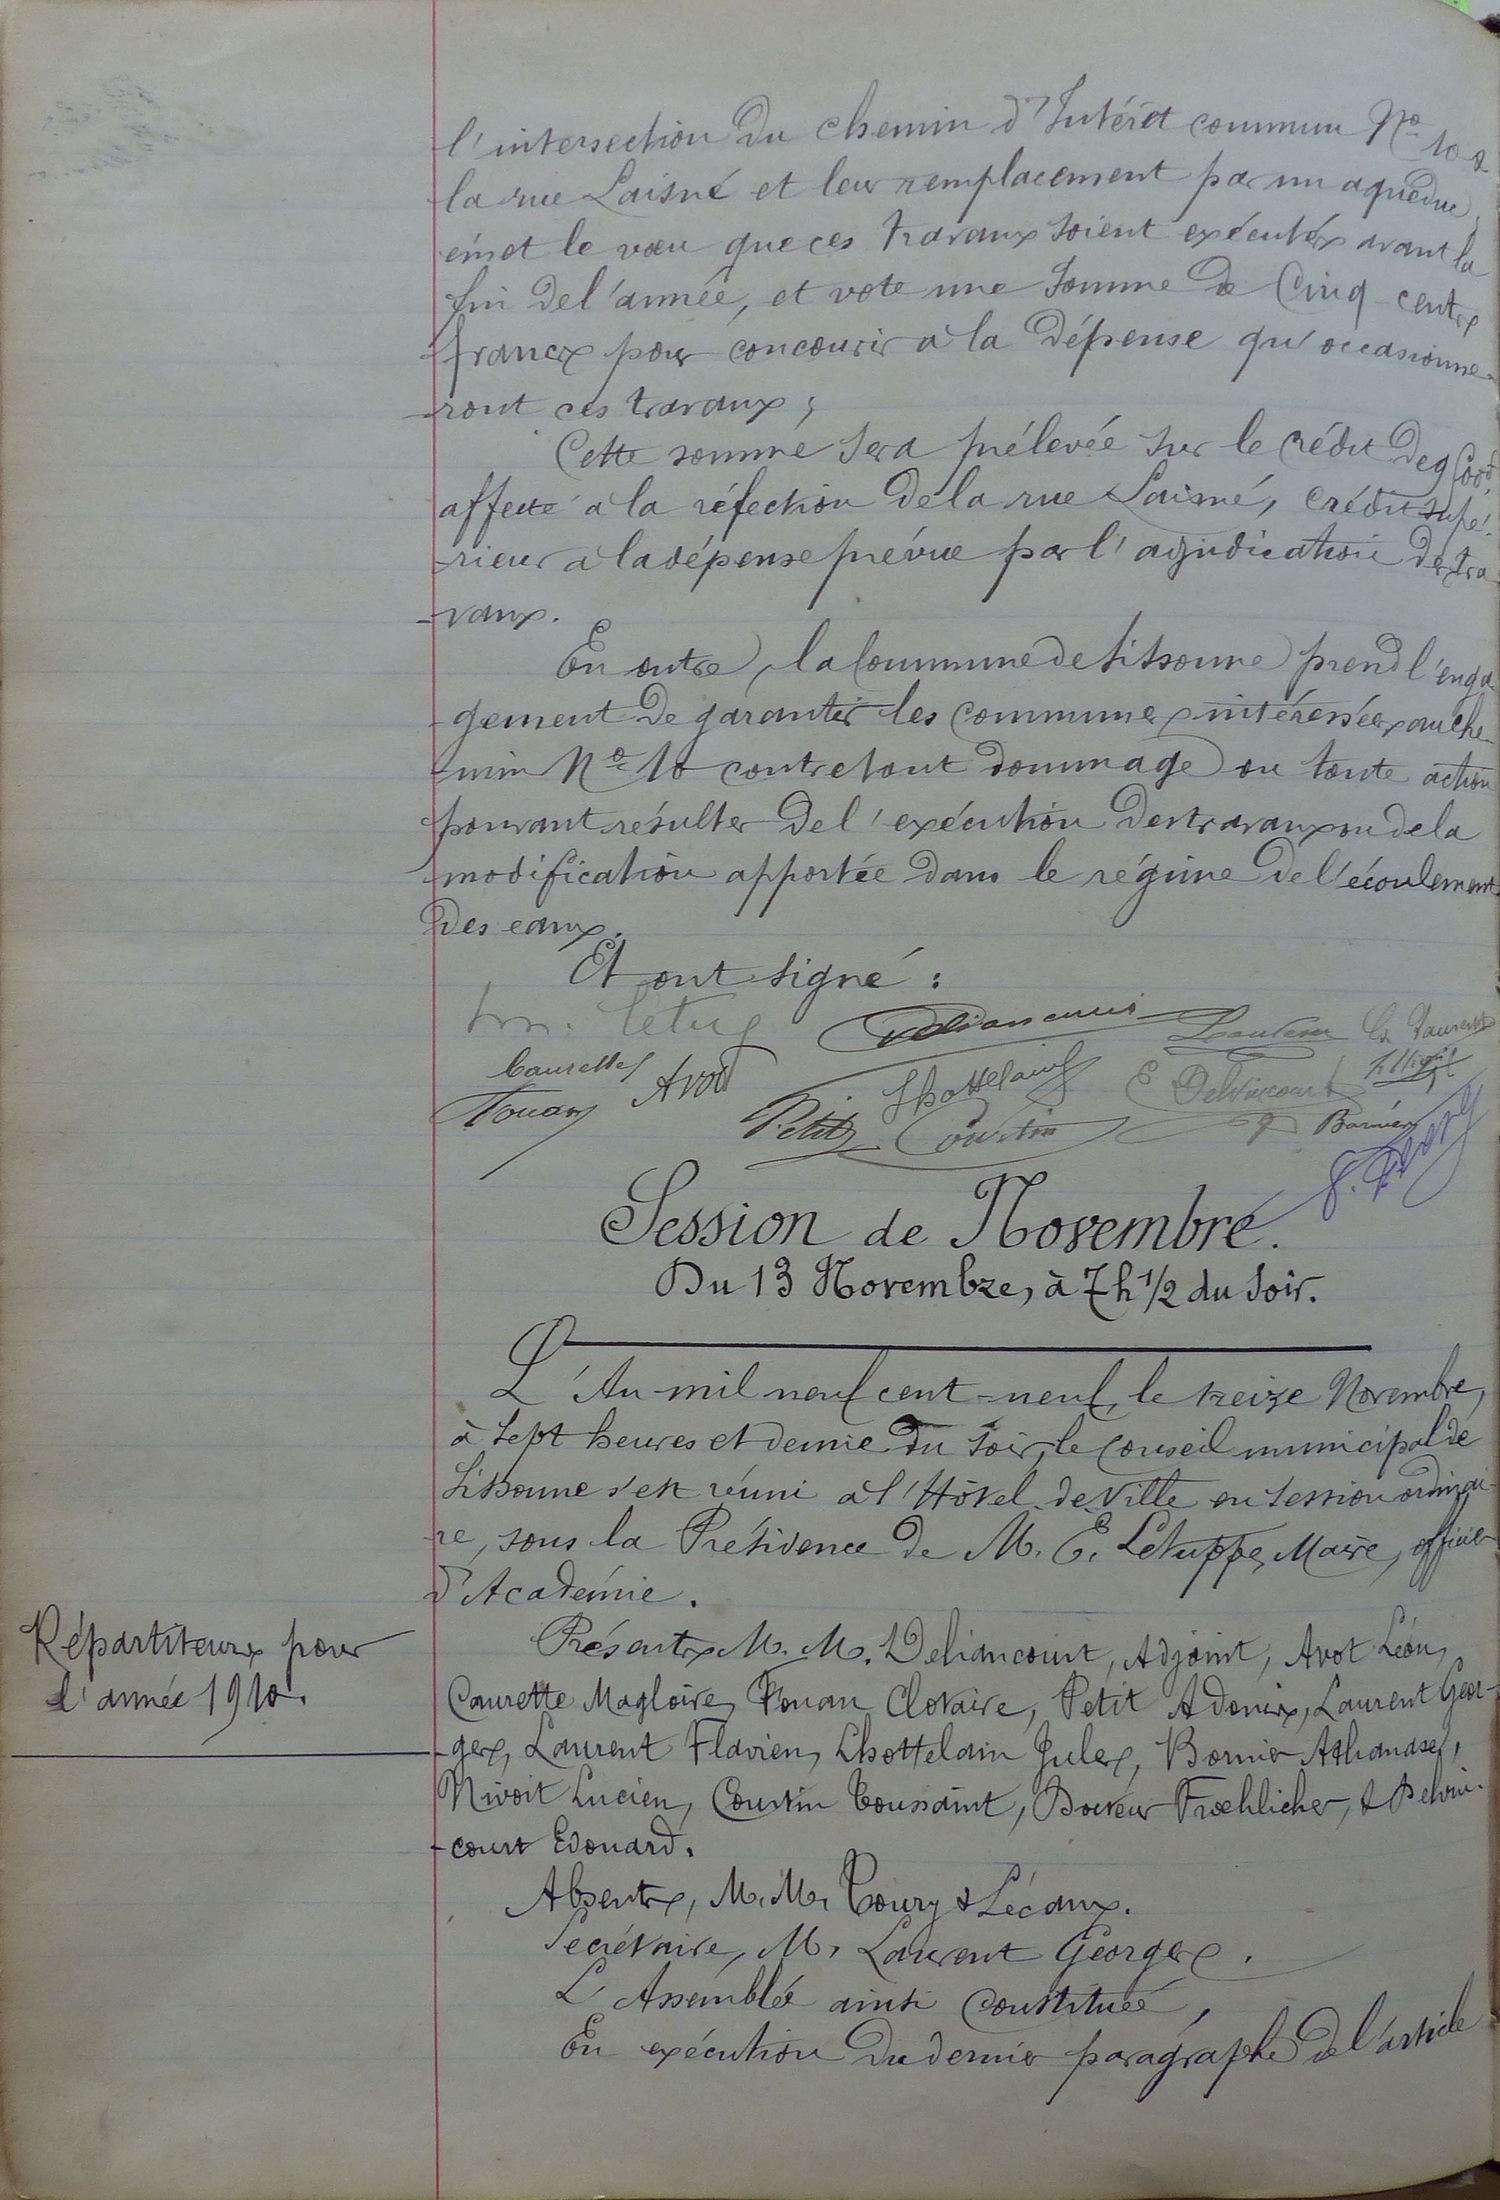 l'intersection du chemin d'Intérêt commun No 10 &
la rue Laisné et leur remplacement par un aqueduc,
émet le vœu que ces travaux soient exécutés avant la
fin de l'année, et vote une somme de Cinq cents
francs pour concourir à la dépense qu'occasionne-
-ront ces travaux ;
Cette somme sera prélevée sur le crédit de
affecté à la réfection de la rue Laisné, crédit supé-
rieur à la dépense prévue par l'adjudication des tra-
-vaux.
En outre, la Commune de Sissonne prend l'enga-
gement de garantir les communes intéressées au che-
-min No 10 contre tout dommage ou toute action
pouvant résulter de l'exécution des travaux ou de la
modification apportée dans le régime de l'écoulement
des eaux.
Et ont signé :
Caurette Avot Lhottelain E Delvincourt
Fouan Petit Courtin
Session de Novembre.
Du 13 Novembre, à 7h 1/2 du Soir.
L'An mil neuf cent-neuf, le treize Novembre,
à sept heures et demie du soir, le Conseil municipal de
Sissonne s'est réuni à l'Hôtel de Ville en session ordinai-
re, sous la Présidence de M. E. Letuppe, Maire, officier
d'Académie.
Répartiteurs pour
l'année 1910.
Présents M. M. Deliancourt, Adjoint, Avot Léon,
Caurette Magloire, Fouan Clotaire, Petit Adonis, Laurent Geor-
-ges, Laurent Flavien, Lhottelain Jules, Bornier Athanase,
Nivoit Lucien, Courtin Toussaint, Docteur Froehlicher, & Delvin-
-court Edouard.
Absents, M. M. Toury & Lécaux.
Secrétaire, M. Laurent Georges.
L'Assemblée ainsi constituée,
En exécution du dernier paragraphe de l'article